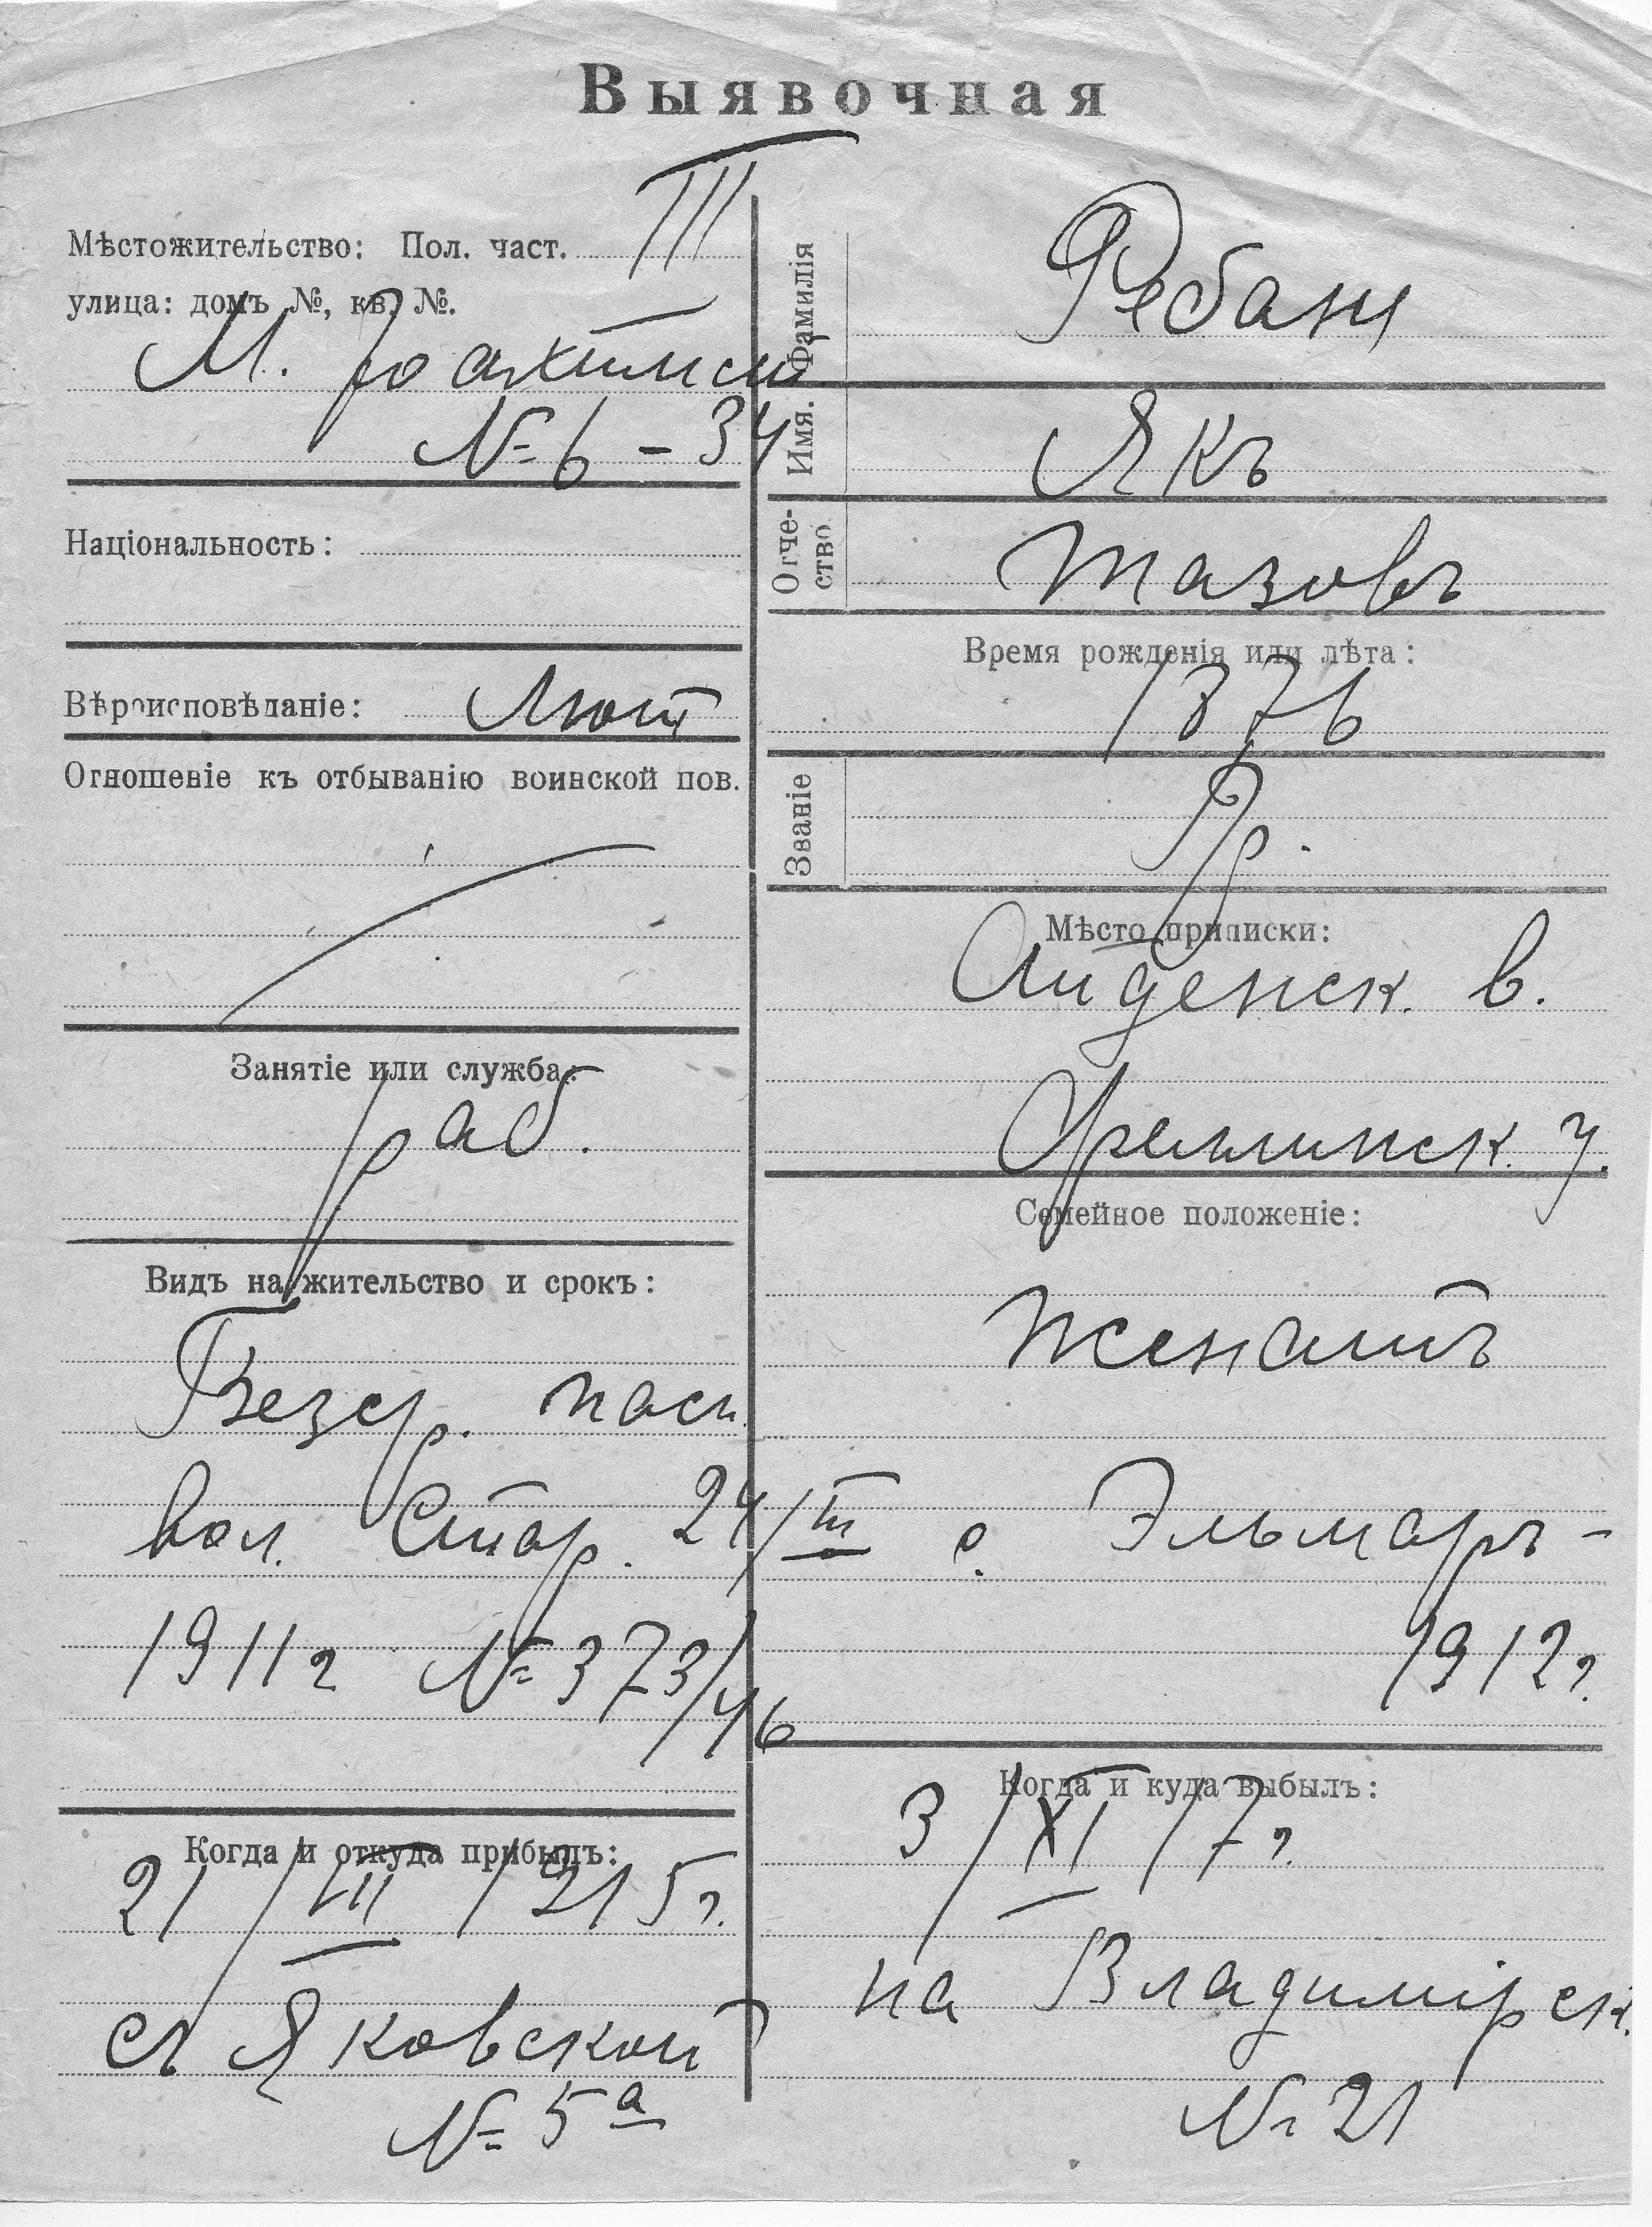 Выявочная
Мѣстожительство: Пол. част. III
улица: домъ №, кв. №.
М.
№ 6 – 34
Національность:
Вѣроисповѣданіе: Лют
Отношеніе къ отбыванію воинской пов.
Занятіе или служба:
раб.
Видъ на жительство и срокъ:
Безср. пасп.
вол. Стар. 24/III
1911 г № 373/46
Когда и откуда прибылъ:
21/VII 1915 г.
съ Яковской
№ 5а
Фамилія
Ребани
Имя.
Якъ
Отчество
Мазовъ
Время рожденія или лѣта:
1876
Званіе
Кр.
Мѣсто приписки:
в.
у.
Семейное положеніе:
Женатъ
с. Эльмаръ –
1912 г.
Когда и куда выбылъ:
3/XI 17 г.
на Владимірск.
№ 21